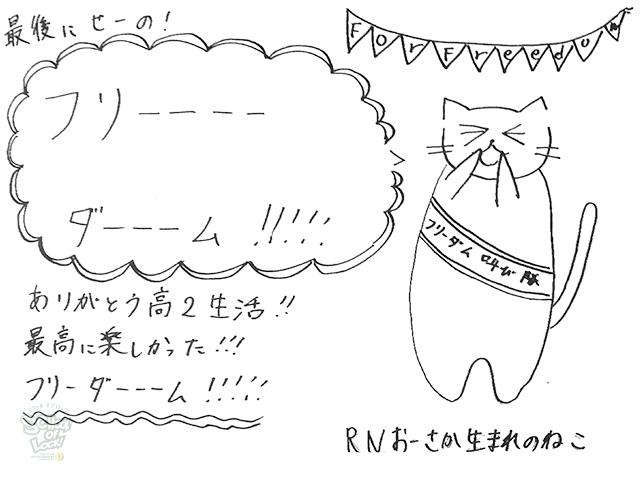 最後に せーの!
For Freedom
フリーーーー
ダーーーム!!!!!
フリーダム 叫び 隊
ありがとう高2生活!!
最高に楽しかった!!!
フリーダーーーム!!!!!
RNおーさか生まれのねこ
School of Lock!